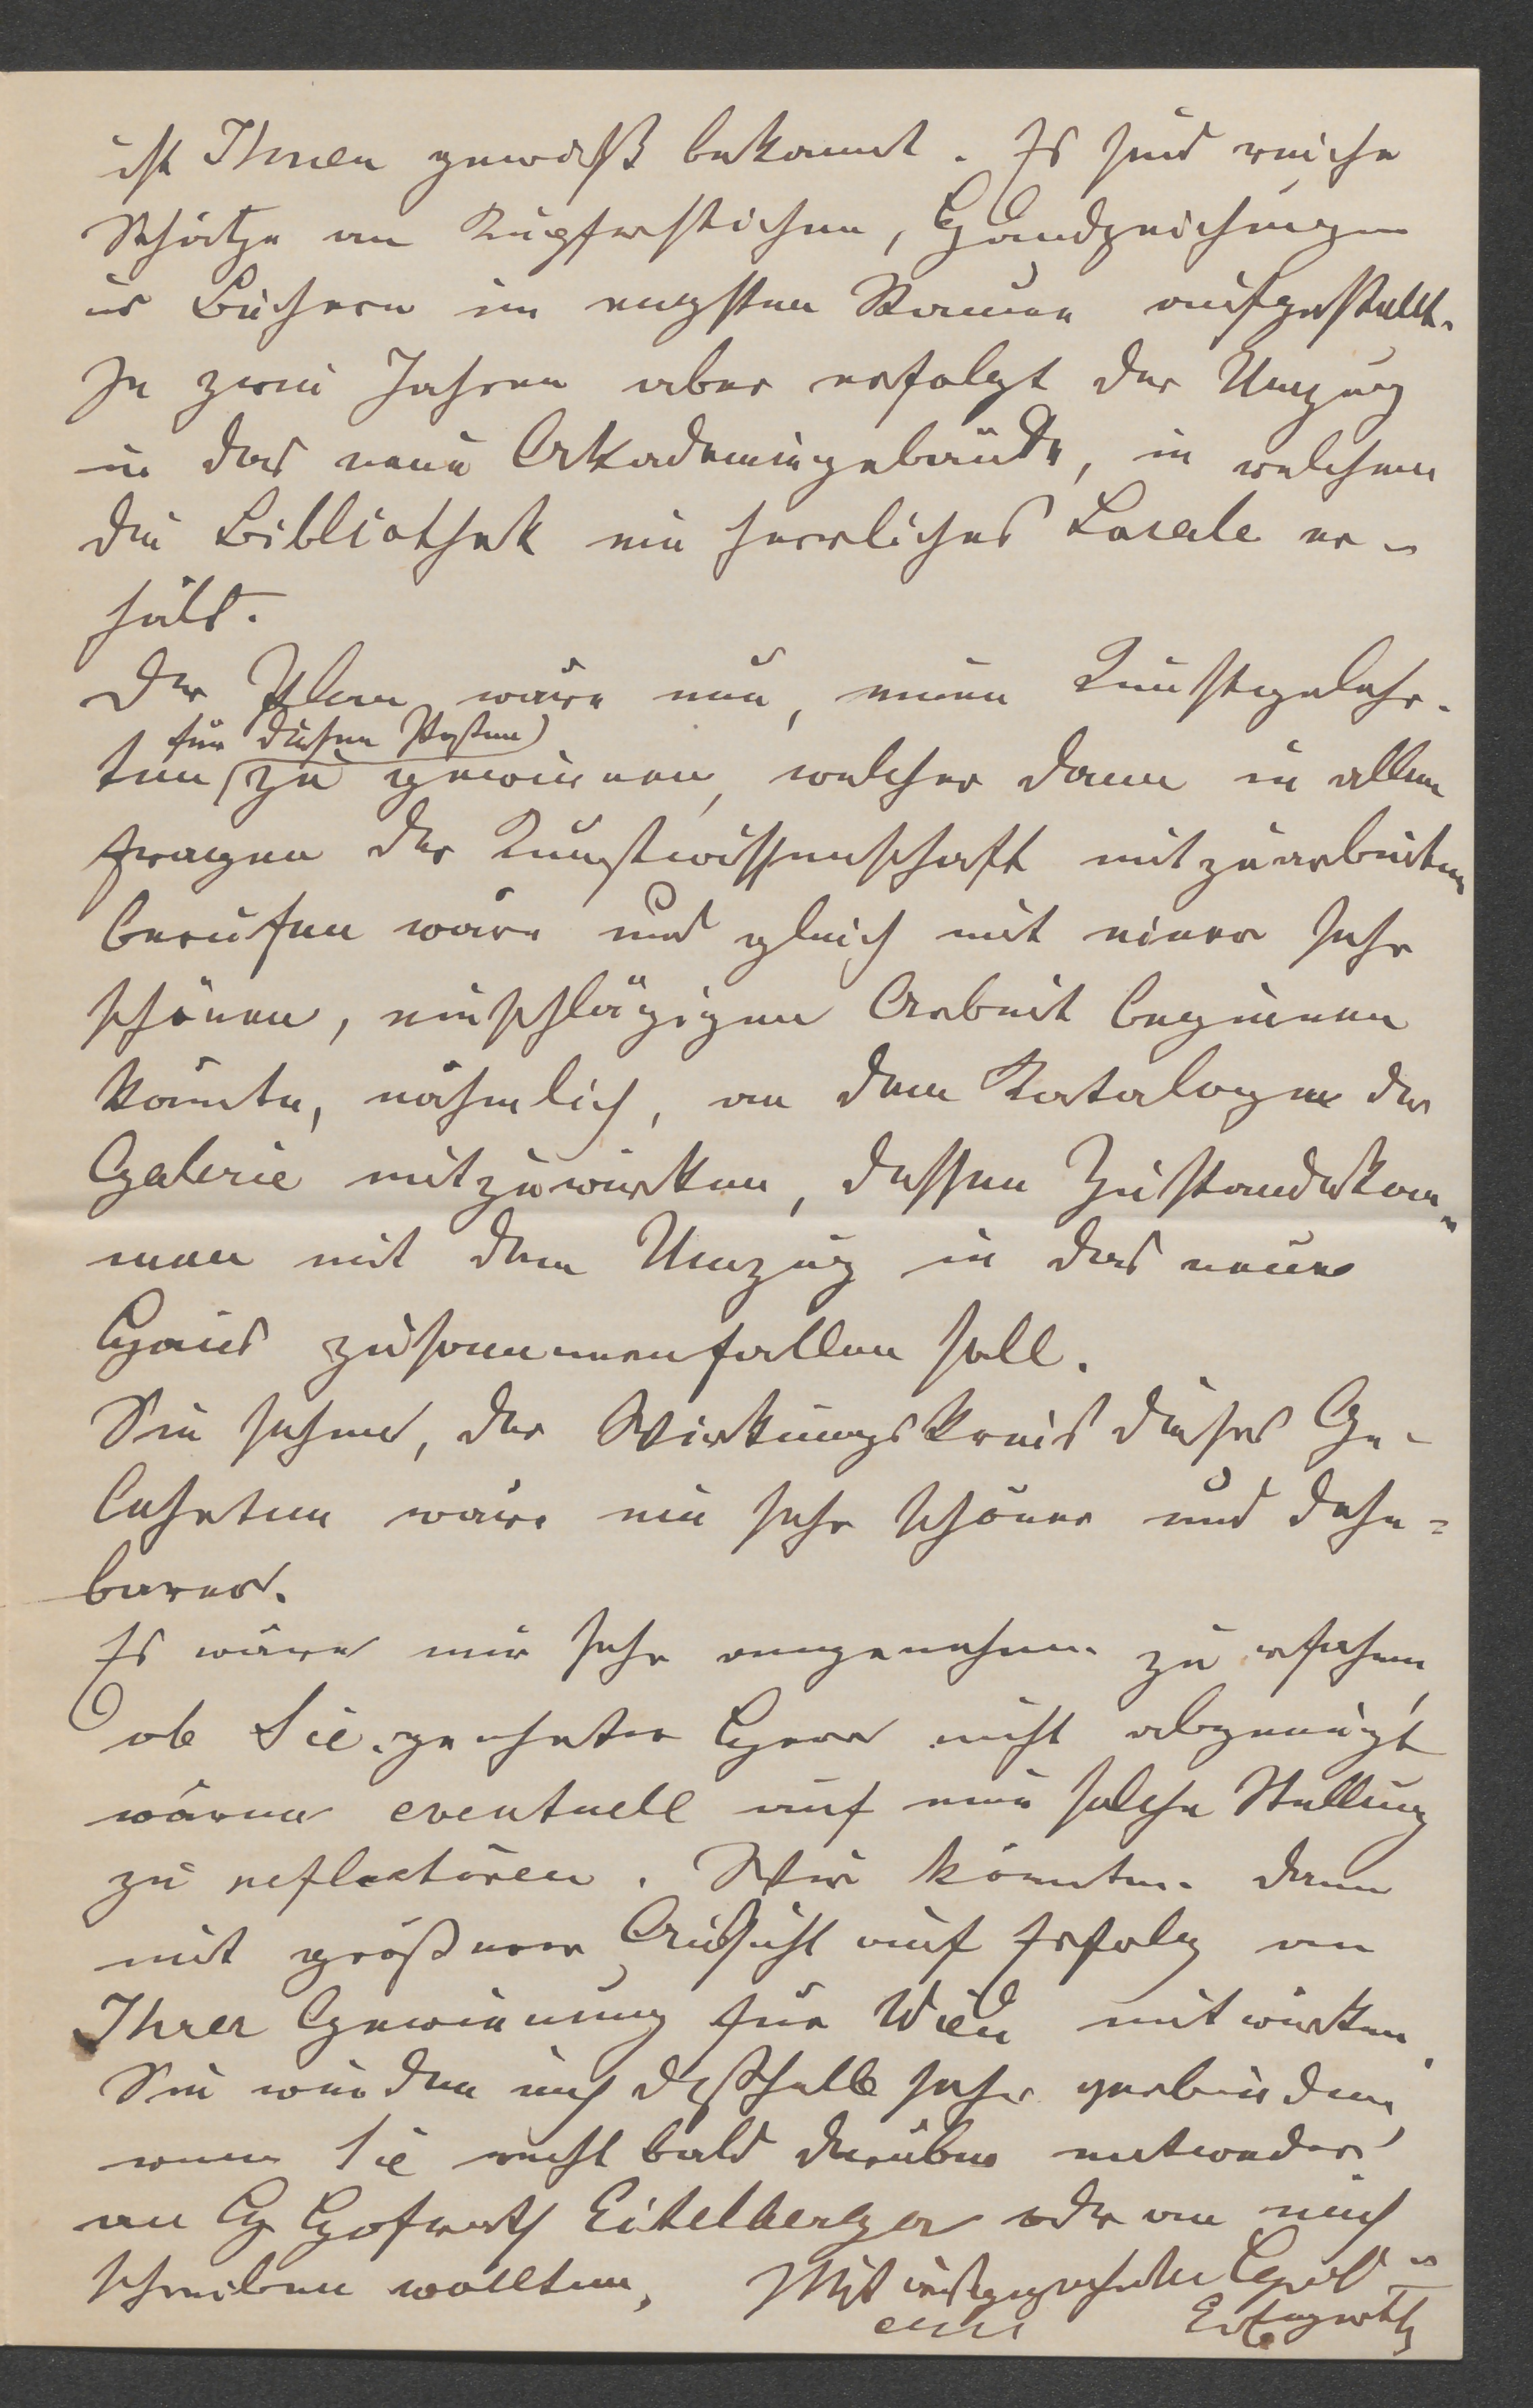 ist Ihnen gewiß bekannt. Es sind reiche
Schätze an Kupferstichen, Handzeichnungen
u Büchern im engsten Raume aufgestellt.
In zwei Jahren aber erfolgt der Umzug
in das neue Akademiegebäude, in welchem
die Bibliothek ein herrliches Locale er-
hält.
Der Plan wäre nun, einen Kunstgelehr-
für diesen Posten
ten zu gewinnen, welcher dann in allen
Fragen der Kunstwissenschaft mitzuarbeiten
berufen wäre und gleich mit einer sehr
schönen, einschlägigen Arbeit beginnen
könnte, nähmlich, an dem Kataloge der
Galerie mitzuwirken, dessen Zustandekom-
men mit dem Umzug in das neue
Haus zusammenfallen soll.
Sie sehen, der Wirkungskreis dieses Ge-
lehrten wäre ein sehr schöner und dehn=
barer.
Es wäre mir sehr angenehm zu erfahren,
ob Sie geehrter Herr nicht abgeneigt
wären eventuell auf eine solche Stellung
zu reflectiren. Wir könnten dann
mit größerer Aussicht auf Erfolg an
Ihrer Gewinnung für Wien mitwirken.
Sie würden mich deßhalb sehr verbinden,
wenn Sie recht bald darüber entweder
an H Hofrath Eitelberger oder an mich
schreiben wollten. Mit ausgezeichneter